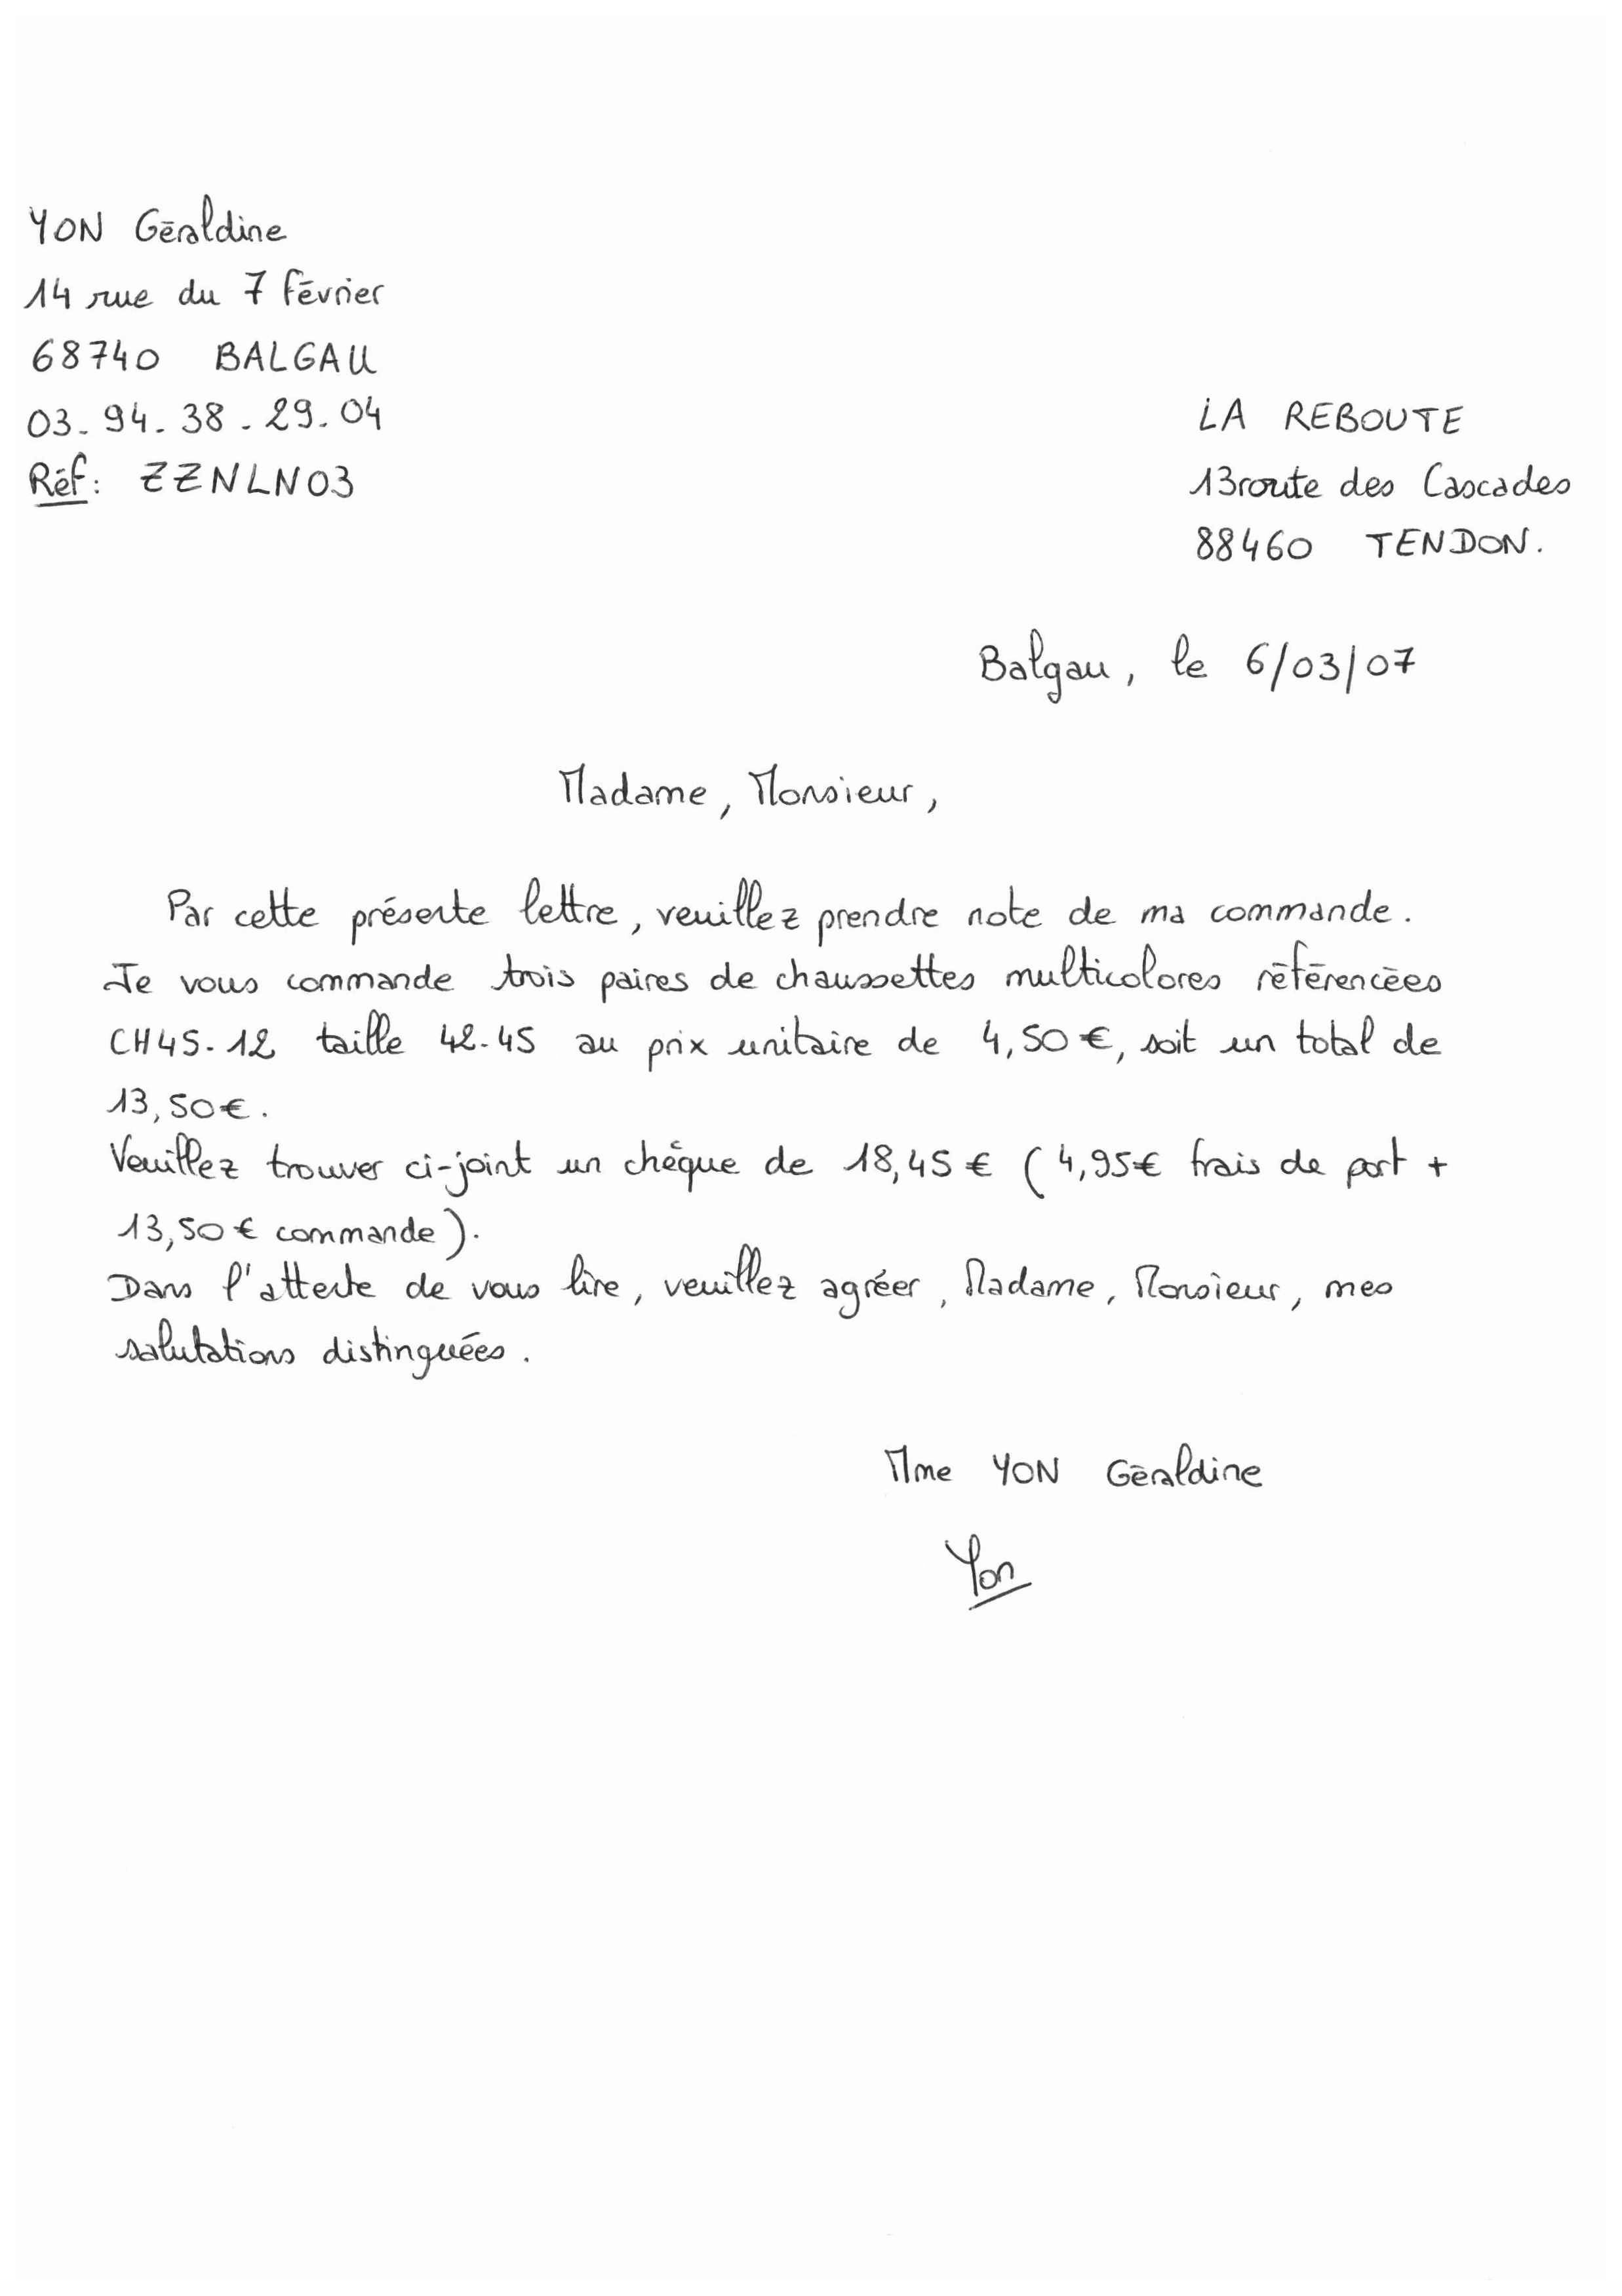 YON Géraldine
14 rue du 7 février
68740 BALGAU
03.94.38.29.04
Réf: ZZNLN03
LA REBOUTE
13 route des Cascades
88460 TENDON.
Balgau, le 6/03/07
Madame, Monsieur,
Par cette présente lettre, veuillez prendre note de ma commande.
Je vous commande trois paires de chaussettes multicolores référencées
CH45-12 taille 42-45 au prix unitaire de 4,50 €, soit un total de
13,50€.
Veuillez trouver ci-joint un chèque de 18,45 € (4,95€ frais de port +
13,50 € commande).
Dans l'attente de vous lire, veuillez agréer, Madame, Monsieur, mes
salutations distinguées.
Mme YON Géraldine
Yon